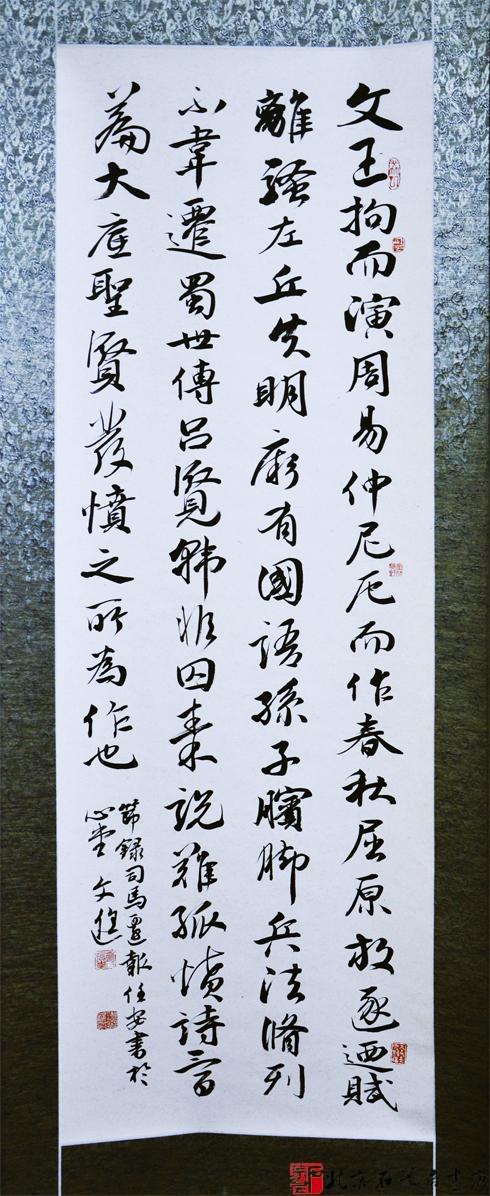 文王拘而演周易仲尼厄而作春秋屈原放逐迺賦
離騷左丘失明厥有國語孫子臏脚兵法脩列
不韋遷蜀世傳呂覽韩非囚秦說難孤憤詩三百
篇大底聖賢發憤之所為作也
節録司馬遷報任安書於
心堂 文進